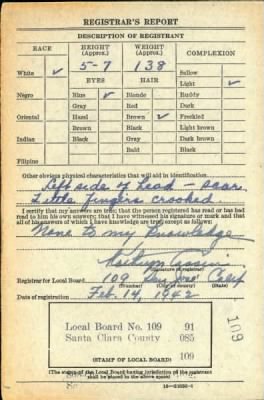 REGISTRAR'S REPORT
DESCRIPTION OF REGISTRANT
RACE HEIGHT (Approx.) WEIGHT (Approx.) COMPLEXION
5-7 138
White ✓ Sallow
EYES HAIR Light ✓
Negro Blue ✓ Blonde Ruddy
Gray Red Dark
Oriental Hazel Brown ✓ Freckled
Brown Black Light brown
Indian Black Gray Dark brown
Bald Black
Filipino
Other obvious physical characteristics that will aid in identification
Left side of head - scar.
Little fingers crooked.
I certify that my answers are true; that the person registered has read or has had
read to him his own answers; that I have witnessed his signature or mark and that
all of his answers of which I have knowledge are true, except as follows:
None to my knowledge
(Signature of registrar)
Registrar for Local Board 109 San Jose Calif
(Number) (City or county) (State)
Date of registration Feb. 14, 1942
Local Board No. 109 91
Santa Clara County 085
109
(STAMP OF LOCAL BOARD)
109
(The stamp of the Local Board having jurisdiction of the registrant
shall be placed in the above space)